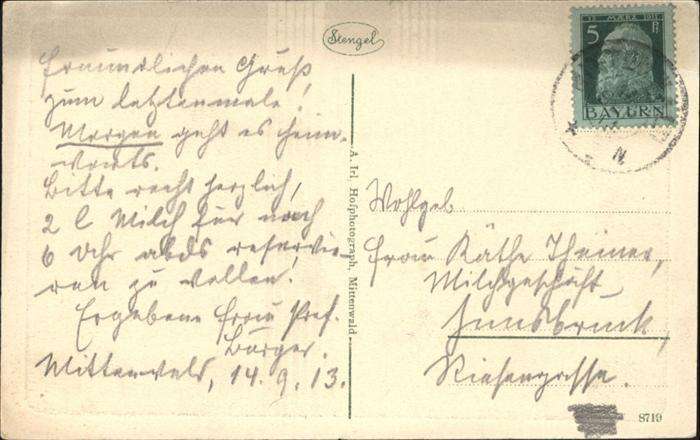 Stengel
12. MÄRZ 1911
5 Pf
BAYERN
Freundlichen Gruß
zum letztenmale!
Morgen geht es heim-
wärts.
Bitte recht herzlich,
2 l Milch für nach
6 Uhr abds reservie-
ren zu wollen.
Ergebene Frau Prof.
Bürger.
Mittenwald, 14. 9. 13.
A. Irl, Hofphotograph, Mittenwald
Wohlgeb
Frau Käthe Theiner,
Milchgeschäft
Innsbruck,
Riesengasse.
8719